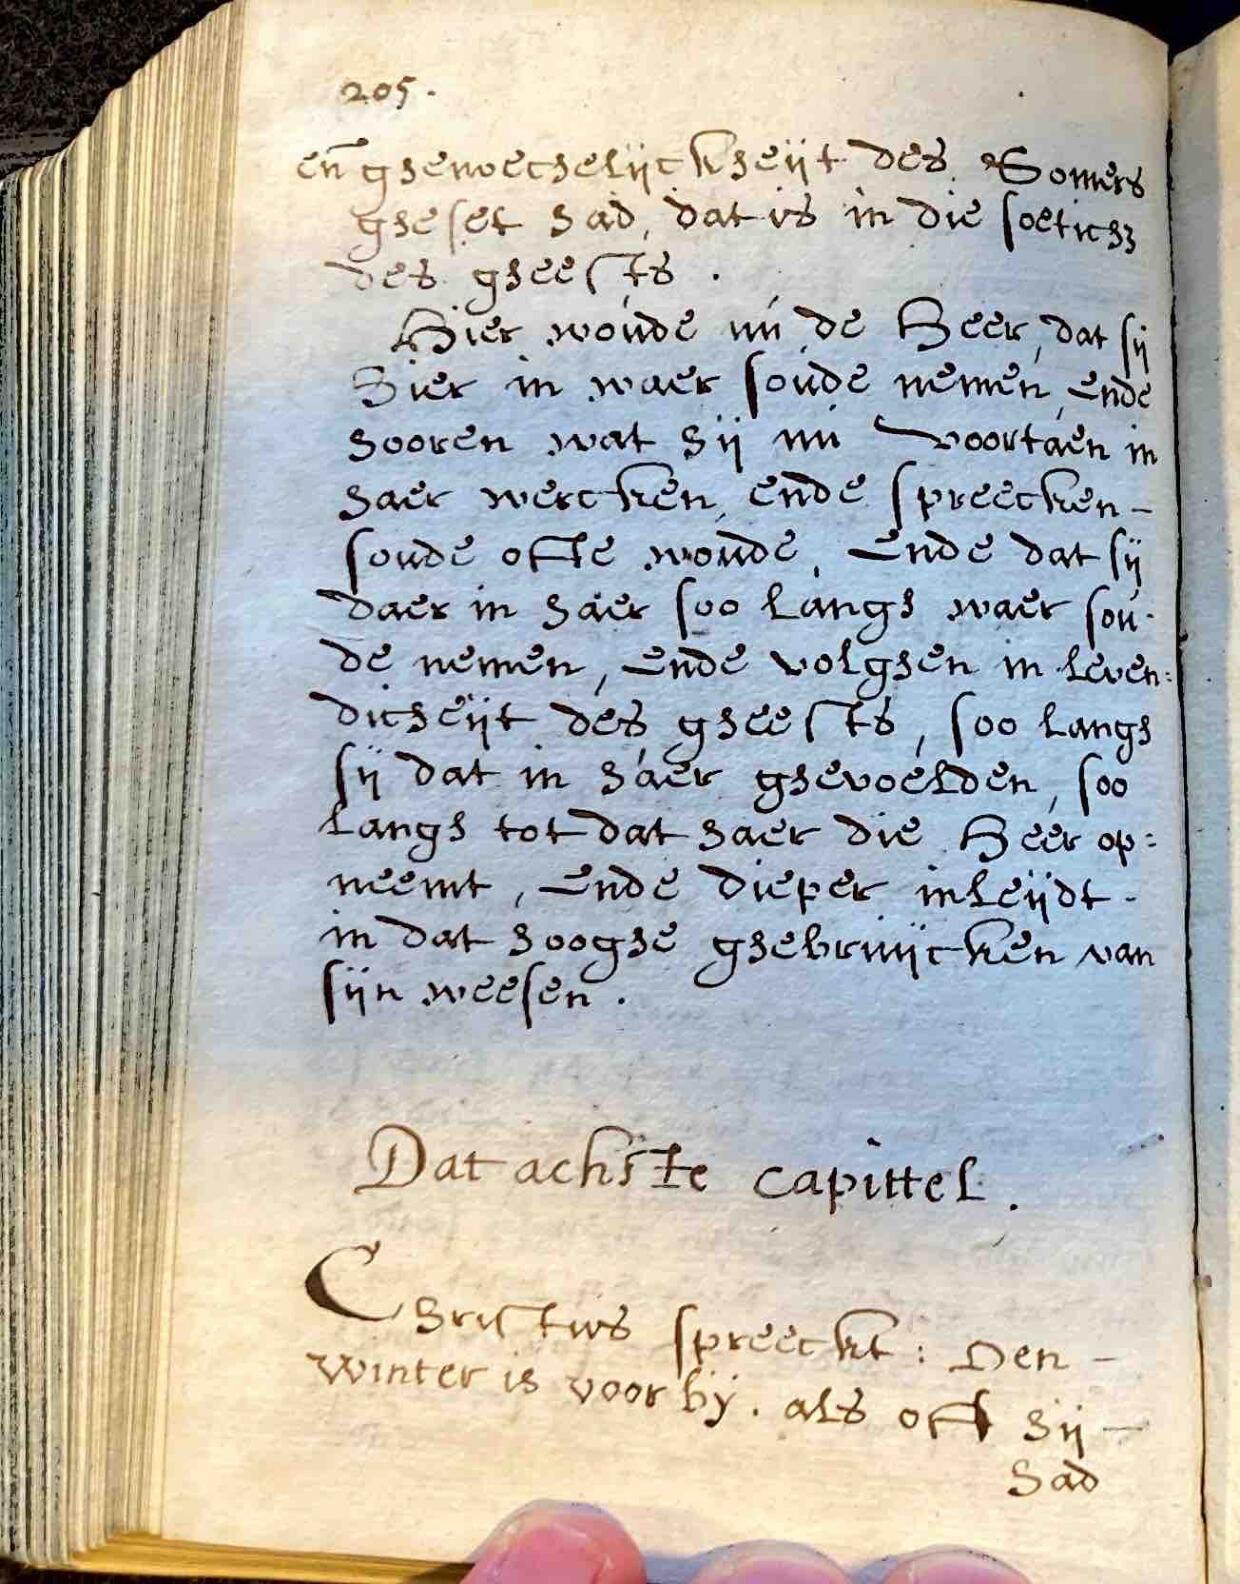 205.
en̄ ghenoechelijckheijt des Somers
gheset had, dat is in die soetich3
des gheests .
Hier woude nu de Heer, dat sij
hier in waer soude nemen, ende
hooren wat hij nu voortaen in
haer wercken, ende spreecken -
soude ofte woude, Ende dat sij
daer in haer soo langh waer sou-
de nemen, Ende volghen in leven:
dicheijt des gheests, soo langh
sij dat in haer ghevoelden, soo
langh tot dat haer die Heer op:
neemt, Ende dieper inleijdt -
in dat hooghe ghebruijcken van
sijn weesen .
Dat achste capittel .
Christus spreeckt : Den -
Winter is voor bij . als oft hij -
had